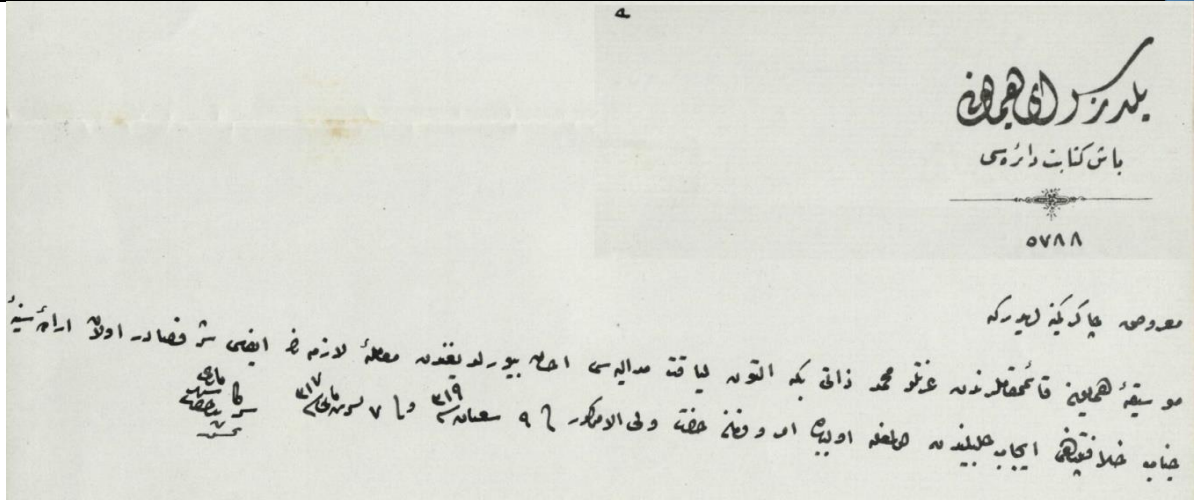 يلديز سراى همايونى
باش كتابت دائره‌سى
٥٧٨٨
معروض چاكر كمينه‌لريدركه
موسيقهٔ همايون قائممقاملرندن عزتلو محمد ذاتى بكه التون لياقت مداليه‌سى احسان بيورلديغندن معاملهٔ لازمه‌نك ايفاسى شرفصادر اولان ارادهٔ سنيهٔ
جناب خلافتپناهى ايجاب جليلندن بولنمغله اولبابده امر و فرمان حضرت ولى الامركدر فى ٩ شعبان ٣١٩ و فى ٧ تشرين ثانى ٣١٧
سر كاتب حضرت شهريارى
تحسين